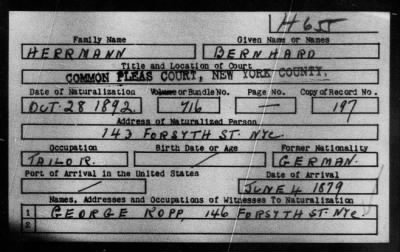 H 655
Family Name Given Name or Names
HERRMANN BERNHARD
Title and Location of Court
COMMON PLEAS COURT, NEW YORK COUNTY.
Date of Naturalization Volume or Bundle No. Page No. Copy of Record No.
OCT. 28 1892. 716 — 197
Address of Naturalized Person
143 FORSYTH ST. NYC.
Occupation Birth Date or Age Former Nationality
TAILOR. / GERMAN.
Port of Arrival in the United States Date of Arrival
/ JUNE 4 1879
Names, Addresses and Occupations of Witnesses To Naturalization
1 GEORGE ROPP, 146 FORSYTH ST. NYC.
2